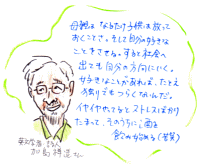 母親は なるたけ子供は放って
おくことです。そして自分の好きな
ことをさせる。すると社会へ
出ても自分の方向にいく。
好きなことがあれば、たとえ
独りでもつらくないんだ。
イヤイヤやってるとストレスばかり
たまって、そのうちに酒を
飲み始める（笑）
英文学者・詩人
加島祥造さん